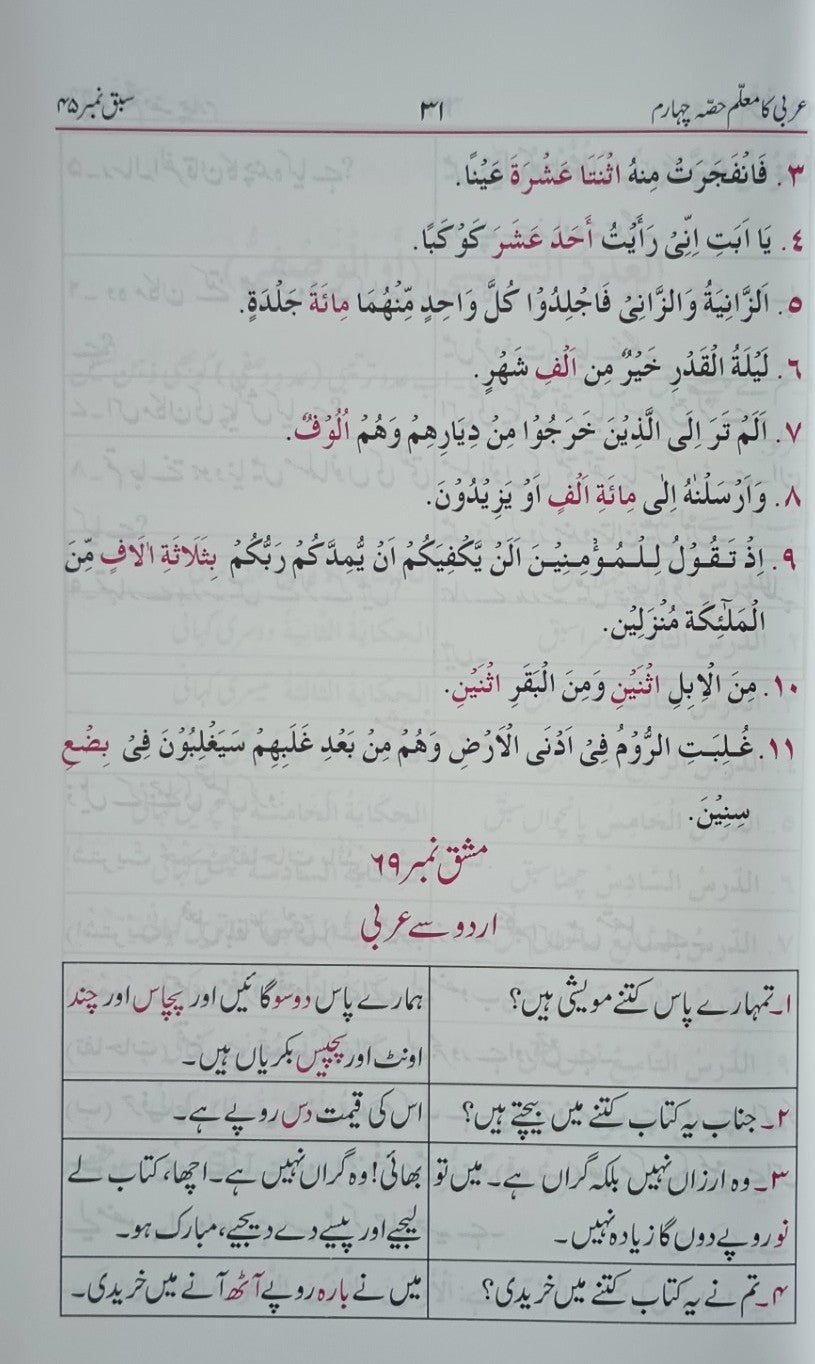 عربی کا معلّم حصّہ چہارم ۳۱ سبق نمبر ۴۵
٣. فَانْفَجَرَتْ مِنْهُ اثْنَتَا عَشْرَةَ عَيْنًا.
٤. يَا اَبَتِ اِنِّىْ رَأَيْتُ أَحَدَ عَشَرَ كَوْكَبًا.
٥. اَلزَّانِيَةُ وَالزَّانِىْ فَاجْلِدُوْا كُلَّ وَاحِدٍ مِّنْهُمَا مِائَةَ جَلْدَةٍ.
٦. لَيْلَةُ الْقَدْرِ خَيْرٌ مِن اَلْفِ شَهْرٍ.
٧. اَلَمْ تَرَ اِلَى الَّذِيْنَ خَرَجُوْا مِنْ دِيَارِهِمْ وَهُمْ اُلُوْفٌ.
٨. وَاَرْسَلْنٰهُ اِلٰى مِائَةِ اَلْفٍ اَوْ يَزِيْدُوْنَ.
٩. اِذْ تَقُوْلُ لِلْمُؤْمِنِيْنَ اَلَنْ يَّكْفِيَكُمْ اَنْ يُّمِدَّكُمْ رَبُّكُمْ بِثَلَاثَةِ اٰلَافٍ مِّنَ
الْمَلٰٓئِكَة مُنْزَلِيْن.
١٠. مِنَ الْاِبِلِ اثْنَيْنِ وَمِنَ الْبَقَرِ اثْنَيْنِ.
١١. غُلِبَتِ الرُّوْمُ فِىْ اَدْنَى الْاَرْضِ وَهُمْ مِنْ بَعْدِ غَلَبِهِمْ سَيَغْلِبُوْنَ فِىْ بِضْعِ
سِنِيْنَ.
مشق نمبر ۶۹
اردو سے عربی
۱۔ تمہارے پاس کتنے مویشی ہیں؟ ہمارے پاس دو سو گائیں اور پچاس اور چند
اونٹ اور پچیس بکریاں ہیں۔
۲۔ جناب یہ کتاب کتنے میں بیچتے ہیں؟ اس کی قیمت دس روپے ہے۔
۳۔ وہ ارزاں نہیں بلکہ گراں ہے۔ میں تو بھائی! وہ گراں نہیں ہے۔ اچھا، کتاب لے
نو روپے دوں گا زیادہ نہیں۔ لیجیے اور پیسے دے دیجیے، مبارک ہو۔
۴۔ تم نے یہ کتاب کتنے میں خریدی؟ میں نے بارہ روپے آٹھ آنے میں خریدی۔